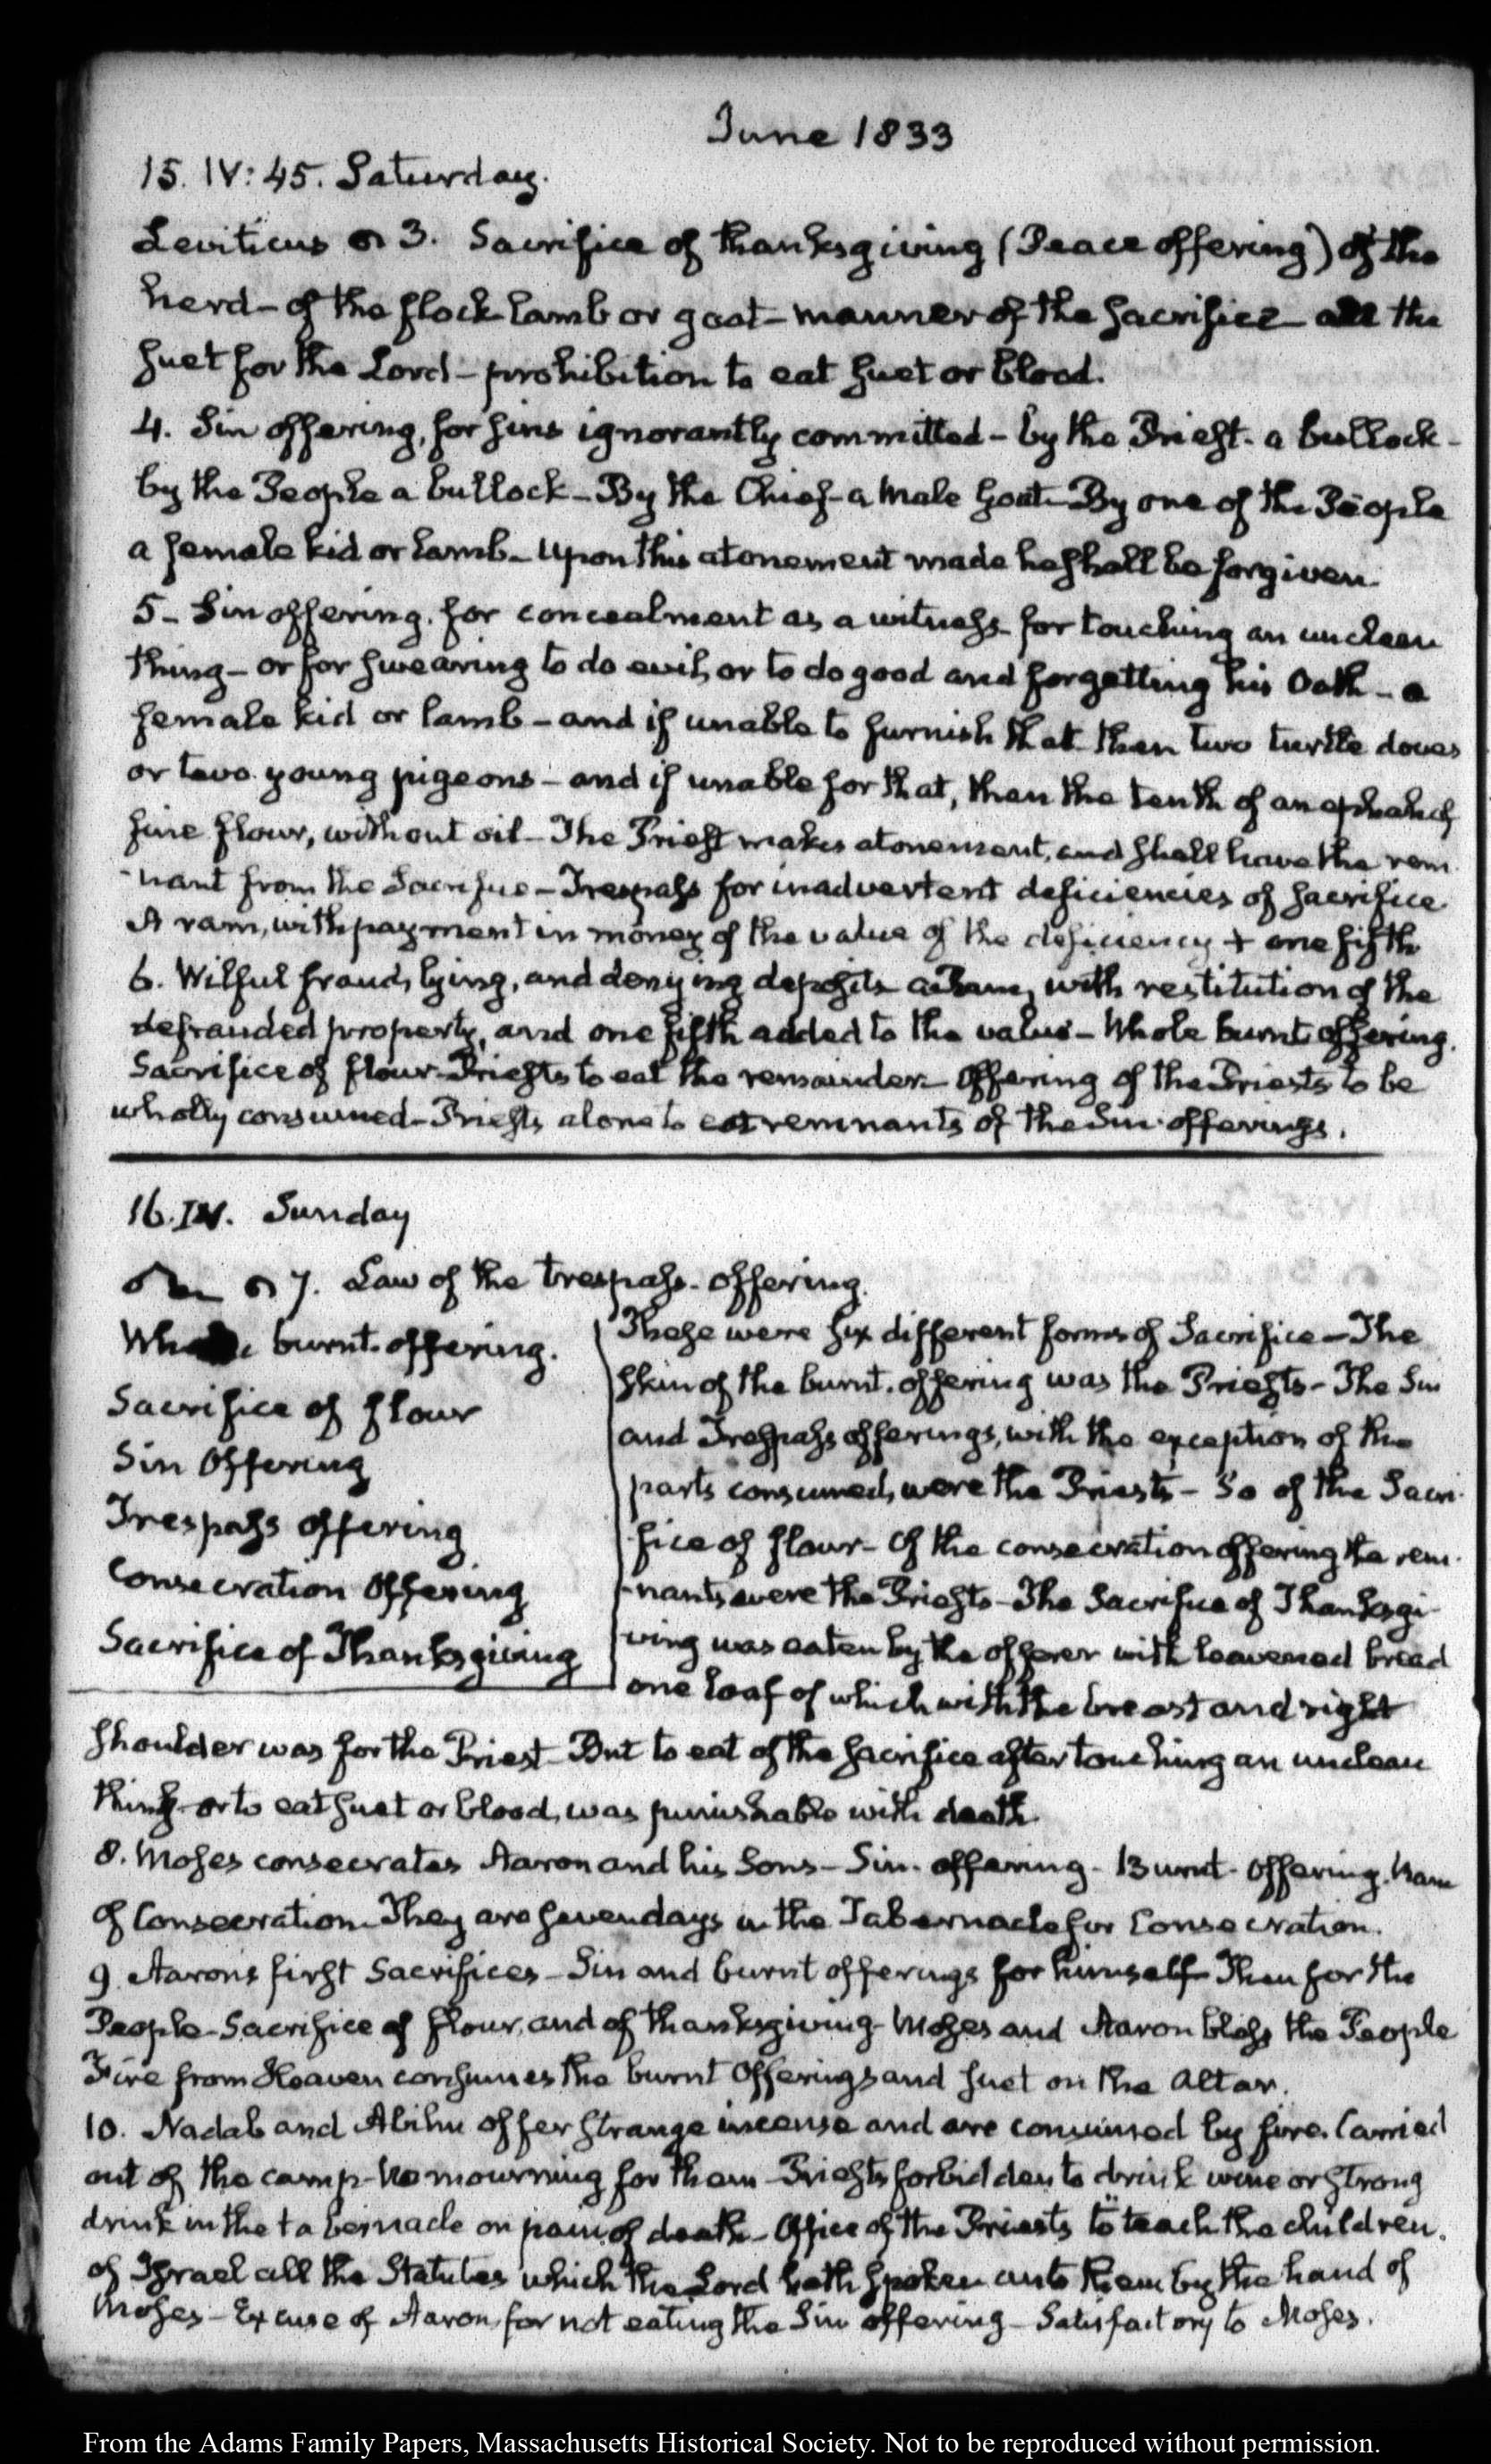 June 1833
15. IV: 45. Saturday.
Leviticus 3. Sacrifice of thanksgiving (Peace offering) of the
herd – of the flock lamb or goat – manner of the Sacrifice – all the
suet for the Lord – prohibition to eat suet or blood.
4. Sin offering, for sins ignorantly committed – by the Priest. a bullock –
by the People a bullock – By the Chief – a male goat – By one of the People
a female kid or lamb – Upon this atonement made he shall be forgiven
5 – Sin offering. for concealment as a witness – for touching an unclean
thing – or for swearing to do evil, or to do good and forgetting his Oath – a
female kid or lamb – and if unable to furnish that then two turtle doves
or two young pigeons – and if unable for that, then the tenth of an ephah of
fine flour, without oil – The Priest makes atonement, and shall have the rem
-nant from the Sacrifice – Trespass for inadvertent deficiencies of Sacrifice
A ram, with payment in money of the value of the deficiency + one fifth
6. Wilful fraud, lying, and denying deposits a Ram, with restitution of the
defrauded property, and one fifth added to the value – Whole burnt offering.
Sacrifice of flour – Priests to eat the remainder – Offering of the Priests to be
wholly consumed – Priests alone to eat remnants of the Sin offerings.
16. IV. Sunday
7. Law of the trespass. offering.
Whole burnt. offering.
Sacrifice of flour
Sin Offering
Trespass offering
Consecration Offering
Sacrifice of Thanksgiving
These were six different forms of Sacrifice – The
skin of the burnt. offering was the Priests – The Sin
and Trespass offerings, with the exception of the
parts consumed, were the Priests – So of the Sacri-
fice of flour – Of the consecration offering the rem-
-nants were the Priests – The Sacrifice of Thanksgi-
ving was eaten by the offerer with leavened bread
one loaf of which with the breast and right
shoulder was for the Priest – But to eat of the sacrifice after touching an unclean
thing – or to eat suet or blood, was punishable with death
8. Moses consecrates Aaron and his Sons – Sin. offering – Burnt. offering. Ram
of Consecration – They are seven days in the Tabernacle for Consecration.
9. Aaron's first Sacrifices – Sin and burnt offerings for himself – Then for the
People – Sacrifice of flour, and of thanksgiving – Moses and Aaron bless the People
Fire from Heaven consumes the burnt Offerings and suet on the Altar.
10. Nadab and Abihu offer strange incense and are consumed by fire. Carried
out of the camp – No mourning for them – Priests forbidden to drink wine or strong
drink in the tabernacle on pain of death – Office of the Priests to "teach the children
of Israel all the Statutes which the Lord hath spoken unto them by the hand of
Moses – Excuse of Aaron, for not eating the Sin offering – Satisfactory to Moses.
From the Adams Family Papers, Massachusetts Historical Society. Not to be reproduced without permission.